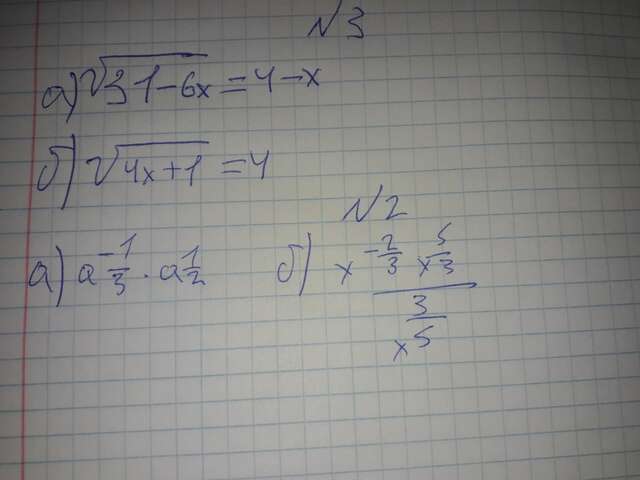 №3
а) √31-6x = 4-x
б) √4x+1 = 4
№2
а) a^-1/3 · a^1/2
б) x^-2/3 x^5/3 / x^3/5